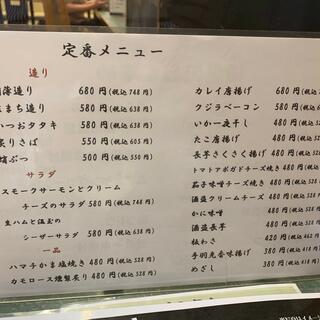 定番メニュー
造り
薄造り 680円(税込748円)
まち造り 580円(税込638円)
つおタタキ 580円(税込638円)
炙りさば 550円(税込605円)
ぶつ 500円(税込550円)
サラダ
スモークサーモンとクリーム
チーズのサラダ 580円(税込638円)
生ハムと温玉の
シーザーサラダ 580円(税込638円)
一品
ハマチかま塩焼き 480円(税込528円)
カモロース燻製炙り 480円(税込528円)
カレイ唐揚げ 680円(税込
クジラベーコン 580円(税込
いか一夜干し 480円(税込528
たこ唐揚げ 480円(税込528
長芋さくさく揚げ 480円(税込528
トマトアボガドチーズ焼き 480円(税込528
茄子味噌チーズ焼き 480円(税込528
酒盗クリームチーズ 480円(税込528
かに味噌 480円(税込528
酒盗長芋 480円(税込528
板わさ 420円(税込462円
手羽先香味揚げ 380円(税込418円
めざし 380円(税込418円